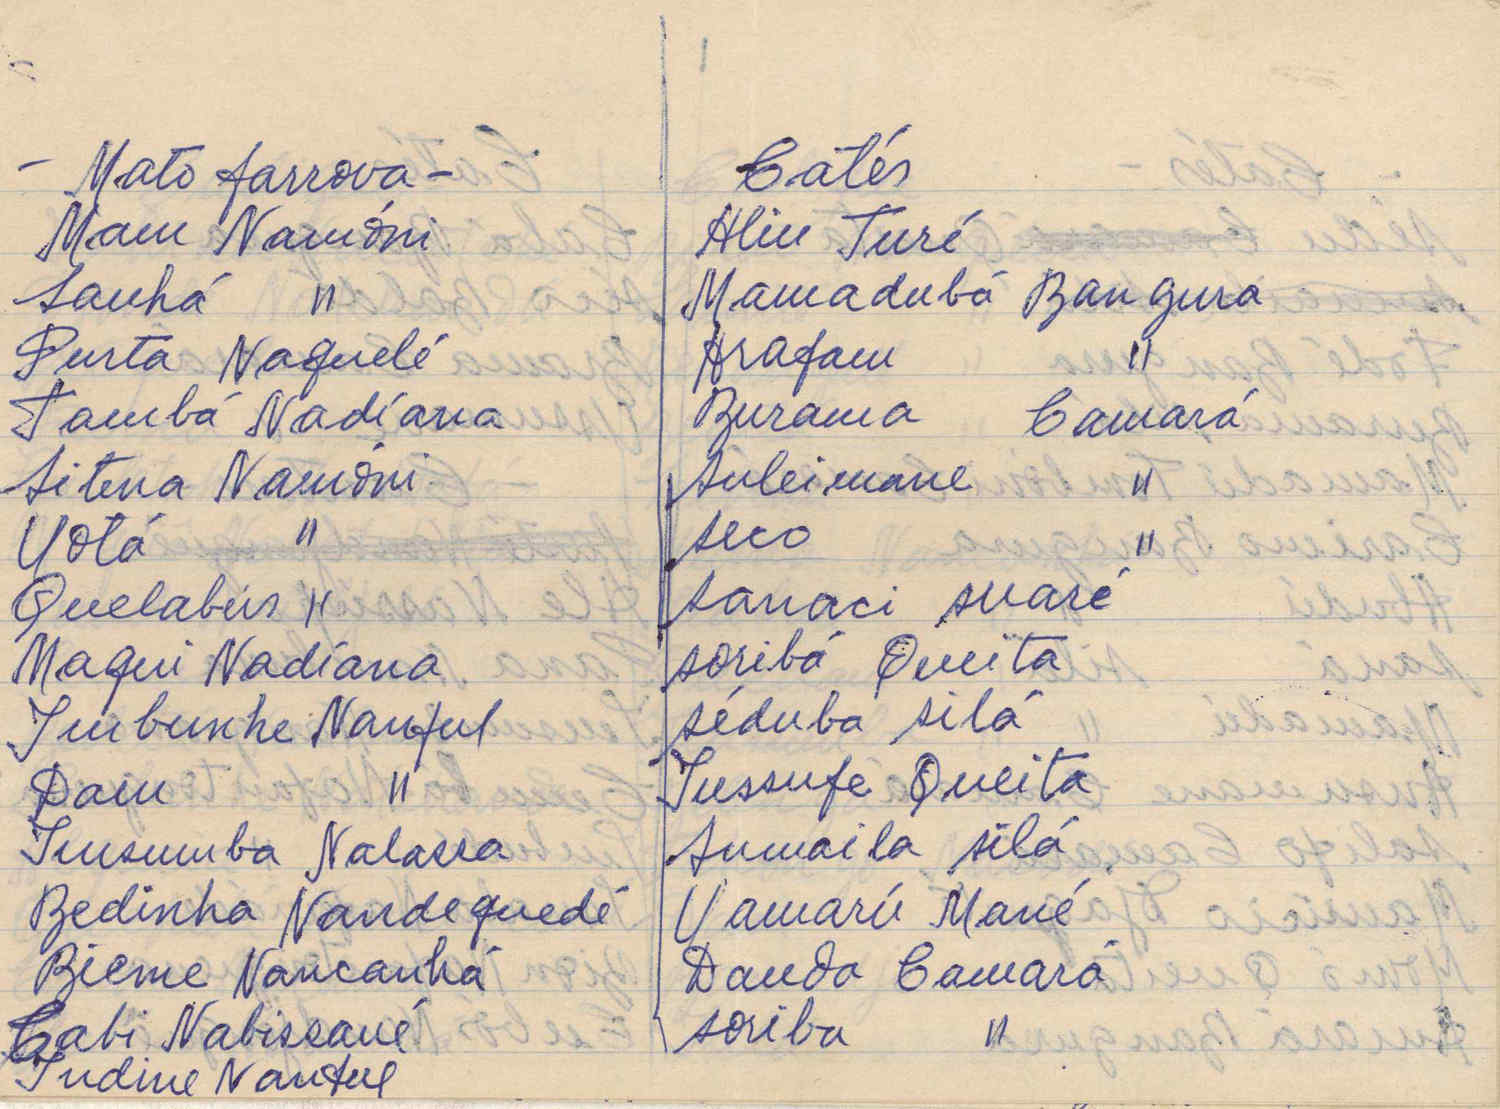 - Mato farrova -
Mam Namóni
Sanhá "
Purta Naquelé
Tambá Nadíana
Sitena Namóni
Yotá "
Quelabús "
Maqui Nadíana
Imbunhe Nanful
Dam "
Insumba Nalassa
Bedinha Nandequedé
Bieme Nancanhá
Cabi Nabissané
Indine Nanful
Catés
Aliu Turé
Mamadubá Bangura
Arafam "
Burama Camará
Suleimane "
Seco "
Sanaci suaré
soribá Queita
séduba silá
Iussufe Queita
Sumaila silá
Yamarú Mané
Dauda Camará
soriba "